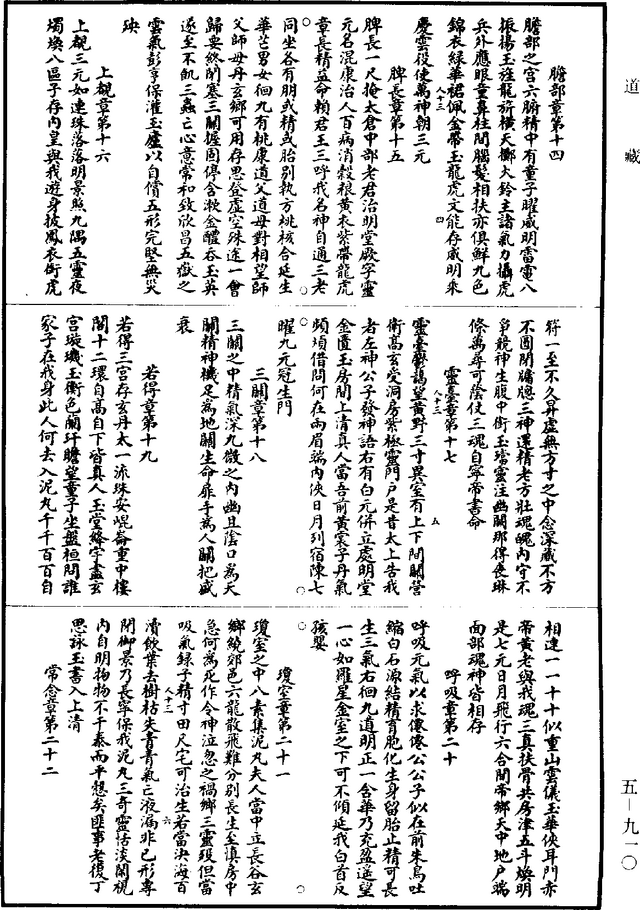 道藏
膽部章第十四
膽部之宮六腑精中有童子曜威明雷電八
振揚玉旌龍旂橫天擲火鈴主諸氣力攝虎
兵外應眼童鼻柱間腦髮相扶亦俱鮮九色
錦衣綠華裙佩金帶玉龍虎文能存威明乘
人十三 四
慶雲役使萬神朝三元
脾長章第十五
脾長一尺掩太倉中部老君治明堂厥字靈
元名混康治人百病消穀粮黃衣紫帶龍虎
章長精益命賴君王三呼我名神自通三老
同坐各有朋或精或胎別執方桃核合延生
華芒男女徊九有桃康道父道母對相望師
父師母丹玄鄉可用存思登虛空殊途一會
歸要終閉塞三關握固停含漱金醴吞玉英
遂至不飢三蟲亡心意常和致欣昌五嶽之
雲氣彭亨保灌玉廬以自償五形完堅無災
殃
上覩章第十六
上覩三元如連珠落落明景照九隅五靈夜
燭煥八區子存內皇與我遊身披鳳衣銜虎
符一至不久昇虛無方寸之中念深藏不方
不圓閉牖牕三神還精老方壯魂魄內守不
爭競神生腹中銜玉璫靈注幽闕那得喪琳
條萬尋可蔭仗三魂自寧帝書命
靈臺章第十七
人十三 五
靈臺鬱藹望黃野三寸異室有上下間關營
衛高玄受洞房紫極靈門戶是昔太上告我
者左神公子發神語右有白元併立處明堂
金匱玉房間上清真人當吾前黃裳子丹氣
頻頻借問何在兩眉端內俠日月列宿陳七
曜九元冠生門
三關章第十八
三關之中精氣深九微之內幽且陰口為天
關精神機足為地關生命扉手為人關把盛
衰
若得章第十九
若得三宮存玄丹太一流珠安崐崙重中樓
閣十二環自高自下皆真人玉堂絳宇盡玄
宮璇璣玉衡色蘭玕瞻望童子坐盤桓問誰
家子在我身此人何去入泥丸千千百百自
相連一一十十似重山雲儀玉華俠耳門赤
帝黃老與我魂三真扶骨共房津五斗煥明
是七元日月飛行六合間帝鄉天中地戶端
面部魂神皆相存
呼吸章第二十
呼吸元氣以求僊僊公公子似在前朱鳥吐
縮白石源結精育胞化生身留胎止精可長
生三氣右徊九道明正一含華乃充盈遙望
一心如羅星金室之下可不傾延我白首反
孩嬰
瓊室章第二十一
瓊室之中八素集泥丸夫人當中立長谷玄
鄉繞郊邑六龍散飛難分別長生至慎房中
急何為死作令神泣忽之禍鄉三靈歿但當
吸氣錄子精寸田尺宅可治生若當決海百
人十三 六
瀆飲葉去樹枯失青青氣亡液漏非己形專
閉御景乃長寧保我泥丸三奇靈恬淡閑視
內自明物物不干泰而平慤矣匪事老復丁
思詠玉書入上清
常念章第二十二
五—九一〇